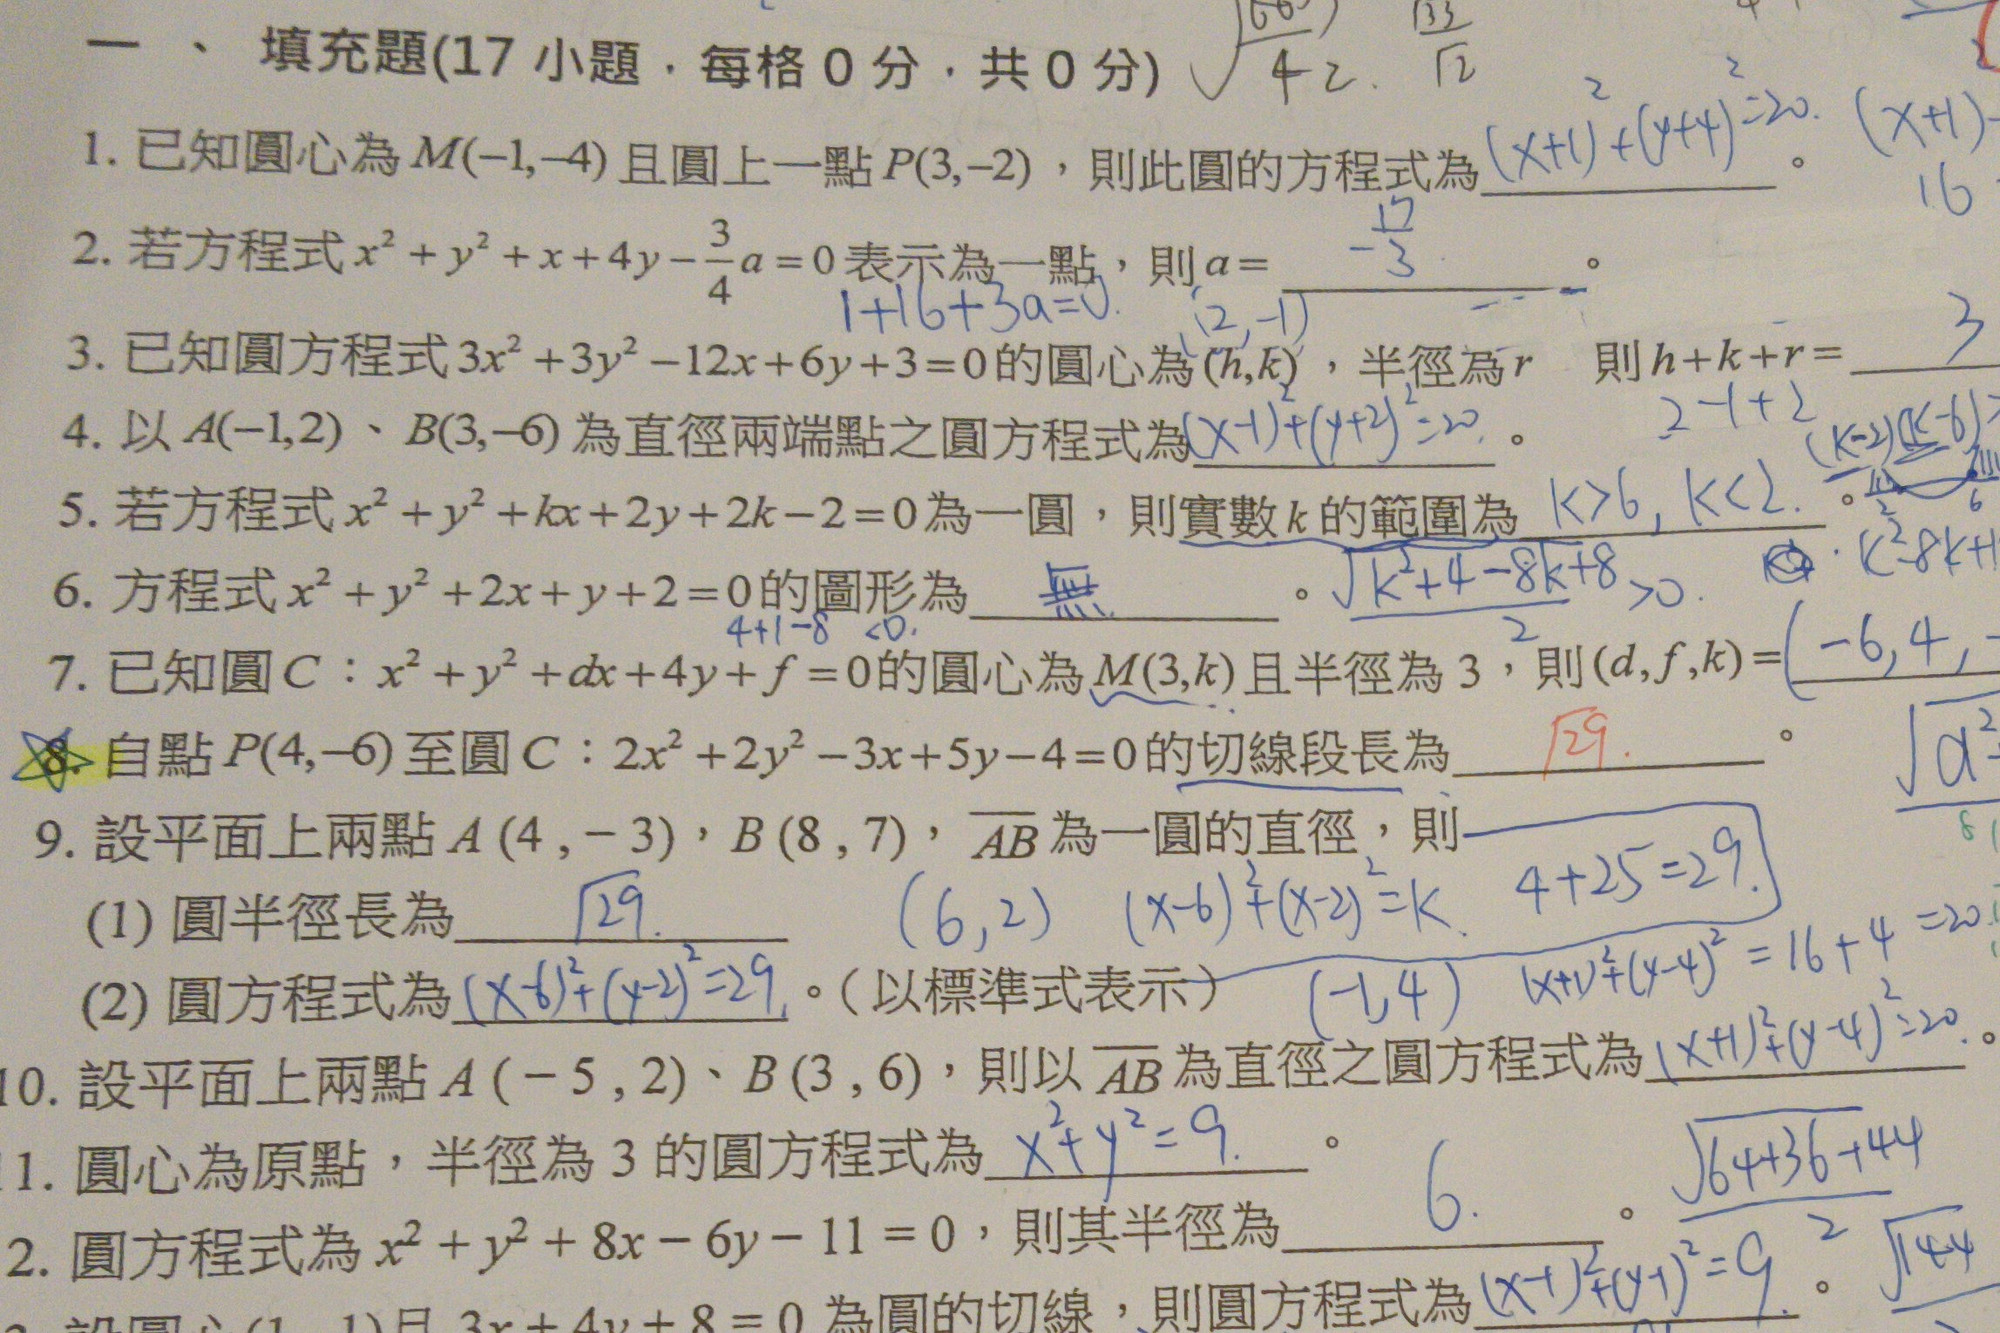 一、填充題(17 小題，每格 0 分，共 0 分)
1. 已知圓心為 M(−1,−4) 且圓上一點 P(3,−2)，則此圓的方程式為 (x+1)²+(y+4)²=20. 。
2. 若方程式 x² + y² + x + 4y − 3/4 a = 0 表示為一點，則 a = −17/3 。
1+16+3a=0.
(2,-1)
3. 已知圓方程式 3x² + 3y² − 12x + 6y + 3 = 0 的圓心為 (h,k)，半徑為 r 則 h + k + r = 3
2-1+2
4. 以 A(−1,2)、B(3,−6) 為直徑兩端點之圓方程式為 (x-1)²+(y+2)²=20. 。
(k-2)(k-6)>
5. 若方程式 x² + y² + kx + 2y + 2k − 2 = 0 為一圓，則實數 k 的範圍為 k>6, k<2. 。
6. 方程式 x² + y² + 2x + y + 2 = 0 的圖形為 無 。 √k²+4-8k+8/2 >0. k²-8k+1
4+1-8 <0.
7. 已知圓 C：x² + y² + dx + 4y + f = 0 的圓心為 M(3,k) 且半徑為 3，則 (d,f,k) = (-6,4,-
8. 自點 P(4,−6) 至圓 C：2x² + 2y² − 3x + 5y − 4 = 0 的切線段長為 √29. 。
9. 設平面上兩點 A (4 , − 3)，B (8 , 7)，AB 為一圓的直徑，則
(1) 圓半徑長為 √29. (6,2) (x-6)²+(x-2)²=k. 4+25=29.
(2) 圓方程式為 (x-6)²+(y-2)²=29. 。（以標準式表示） (-1,4) (x+1)²+(y-4)²=16+4=20
10. 設平面上兩點 A ( − 5 , 2)、B (3 , 6)，則以 AB 為直徑之圓方程式為 (x+1)²+(y-4)²=20. 。
1. 圓心為原點，半徑為 3 的圓方程式為 x²+y²=9. 。
√64+36+44/2
2. 圓方程式為 x² + y² + 8x − 6y − 11 = 0，則其半徑為 6. 。
√144
3x + 4y + 8 = 0 為圓的切線，則圓方程式為 (x-1)²+(y-1)²=9. 。